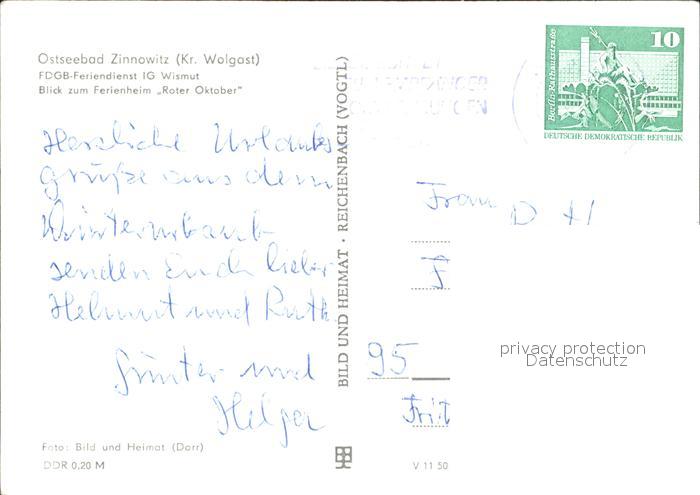 Ostseebad Zinnowitz (Kr. Wolgast)
FDGB-Feriendienst IG Wismut
Blick zum Ferienheim „Roter Oktober"
Herzliche Urlaubs
grüße aus dem
Winterurlaub
senden Euch lieber
Helmut und Ruth
Günter und
Helga
Foto: Bild und Heimat (Darr)
DDR 0,20 M
BILD UND HEIMAT · REICHENBACH (VOGTL)
V 11 50
Berlin-Rathausstraße
10
DEUTSCHE DEMOKRATISCHE REPUBLIK
Frau D H
F
95
Frit
privacy protection
Datenschutz